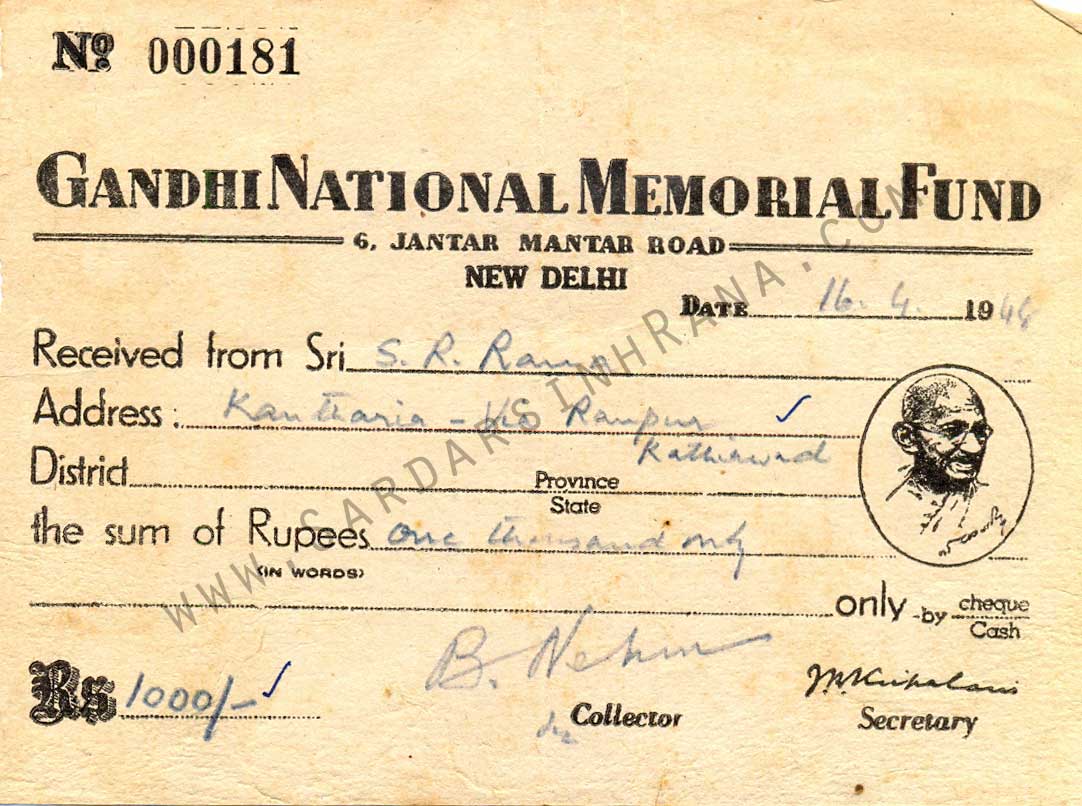 No. 000181
GANDHI NATIONAL MEMORIAL FUND
6, JANTAR MANTAR ROAD
NEW DELHI
DATE 16.4. 1948
Received from Sri S. R. Rana
Address: Kantharia - Via Ranpur
Kathiawad
District Province
State
the sum of Rupees One thousand only
(IN WORDS)
only -by cheque
Cash
Rs 1000/-
B. Nehru
JMKripalani
Collector
Secretary
WWW.SARDARSINHRANA.COM